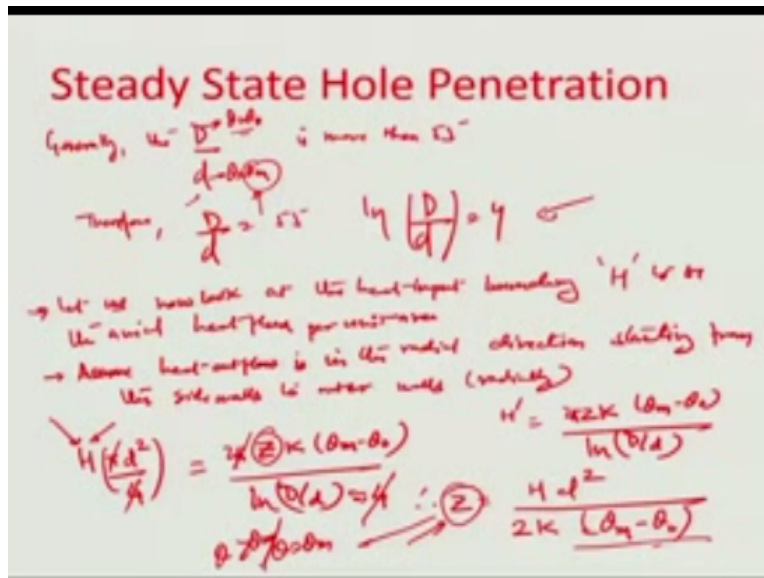 Steady State Hole Penetration
Generally, the D θ=θ₀ is more than 55
d → θ=θm
Therefore, D/d = 55 ln (D/d) = 4
→ Let us now look at the heat-input boundary 'H' is
the axial heat flux per unit area
→ Assume heat-outflow is in the radial direction starting from
the side walls to outer walls (radially)
H' = 2πzK (θm-θ₀) / ln(D/d)
H(πd²/4) = 2πzK (θm-θ₀) / ln(D/d) = 4 ∴ z = Hd² / 2K (θm-θ₀)
θ=θm